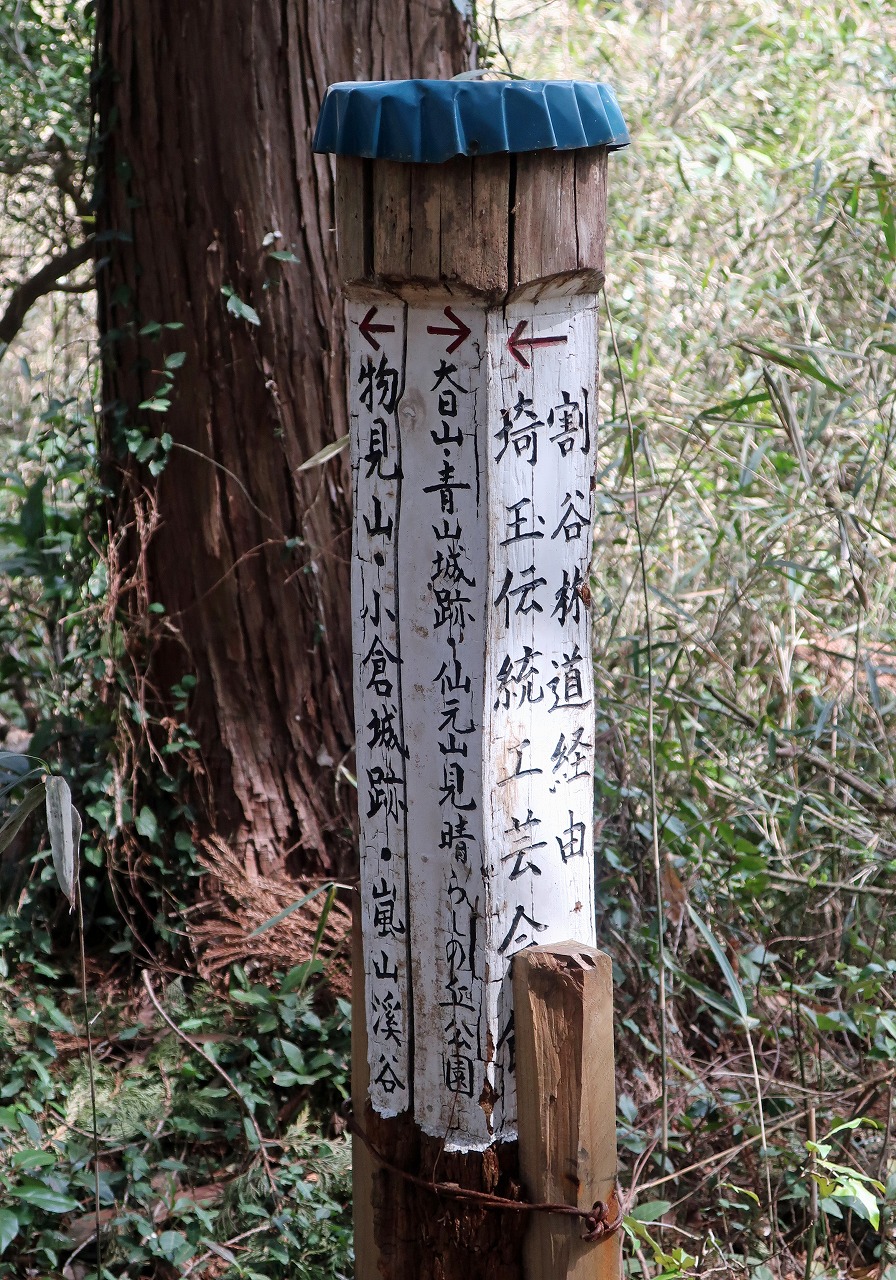 ←
割谷林道経由
埼玉伝統工芸会
→
大日山・青山城跡・仙元山見晴らしの丘公園
←
物見山・小倉城跡・嵐山溪谷